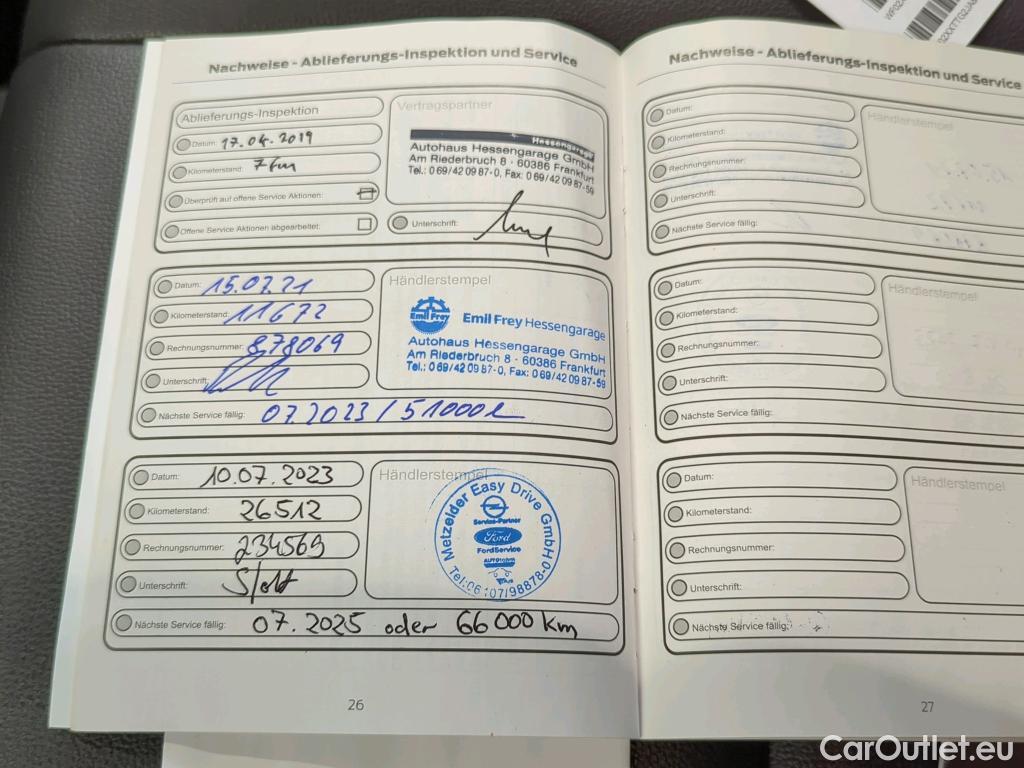 Nachweise - Ablieferungs-Inspektion und Service
Ablieferungs-Inspektion
Datum: 17.04.2019
Kilometerstand: 7 km
Überprüft auf offene Service Aktionen:
Offene Service Aktionen abgearbeitet:
Vertragspartner
Hessengarage
Autohaus Hessengarage GmbH
Am Riederbruch 8 · 60386 Frankfurt
Tel.: 0 69/42 09 87-0, Fax: 0 69/42 09 87-59
Unterschrift:
Datum: 15.07.21
Kilometerstand: 11672
Rechnungsnummer: 878069
Unterschrift:
Nächste Service fällig: 07.2023 / 51000
Händlerstempel
Emil Frey
Emil Frey Hessengarage
Autohaus Hessengarage GmbH
Am Riederbruch 8 · 60386 Frankfurt
Tel.: 0 69/42 09 87-0, Fax: 0 69/42 09 87-59
Datum: 10.07.2023
Kilometerstand: 26512
Rechnungsnummer: 234569
Unterschrift:
Nächste Service fällig: 07.2025 oder 66000 km
Händlerstempel
Metzelder Easy Drive GmbH
Service-Partner
Ford
FordService
Tel.: 06107/98878-0
26
Nachweise - Ablieferungs-Inspektion und Service
Datum:
Kilometerstand:
Rechnungsnummer:
Unterschrift:
Nächste Service fällig:
Händlerstempel
Datum:
Kilometerstand:
Rechnungsnummer:
Unterschrift:
Nächste Service fällig:
Händlerstempel
Datum:
Kilometerstand:
Rechnungsnummer:
Unterschrift:
Nächste Service fällig:
Händlerstempel
27
CarOutlet.eu